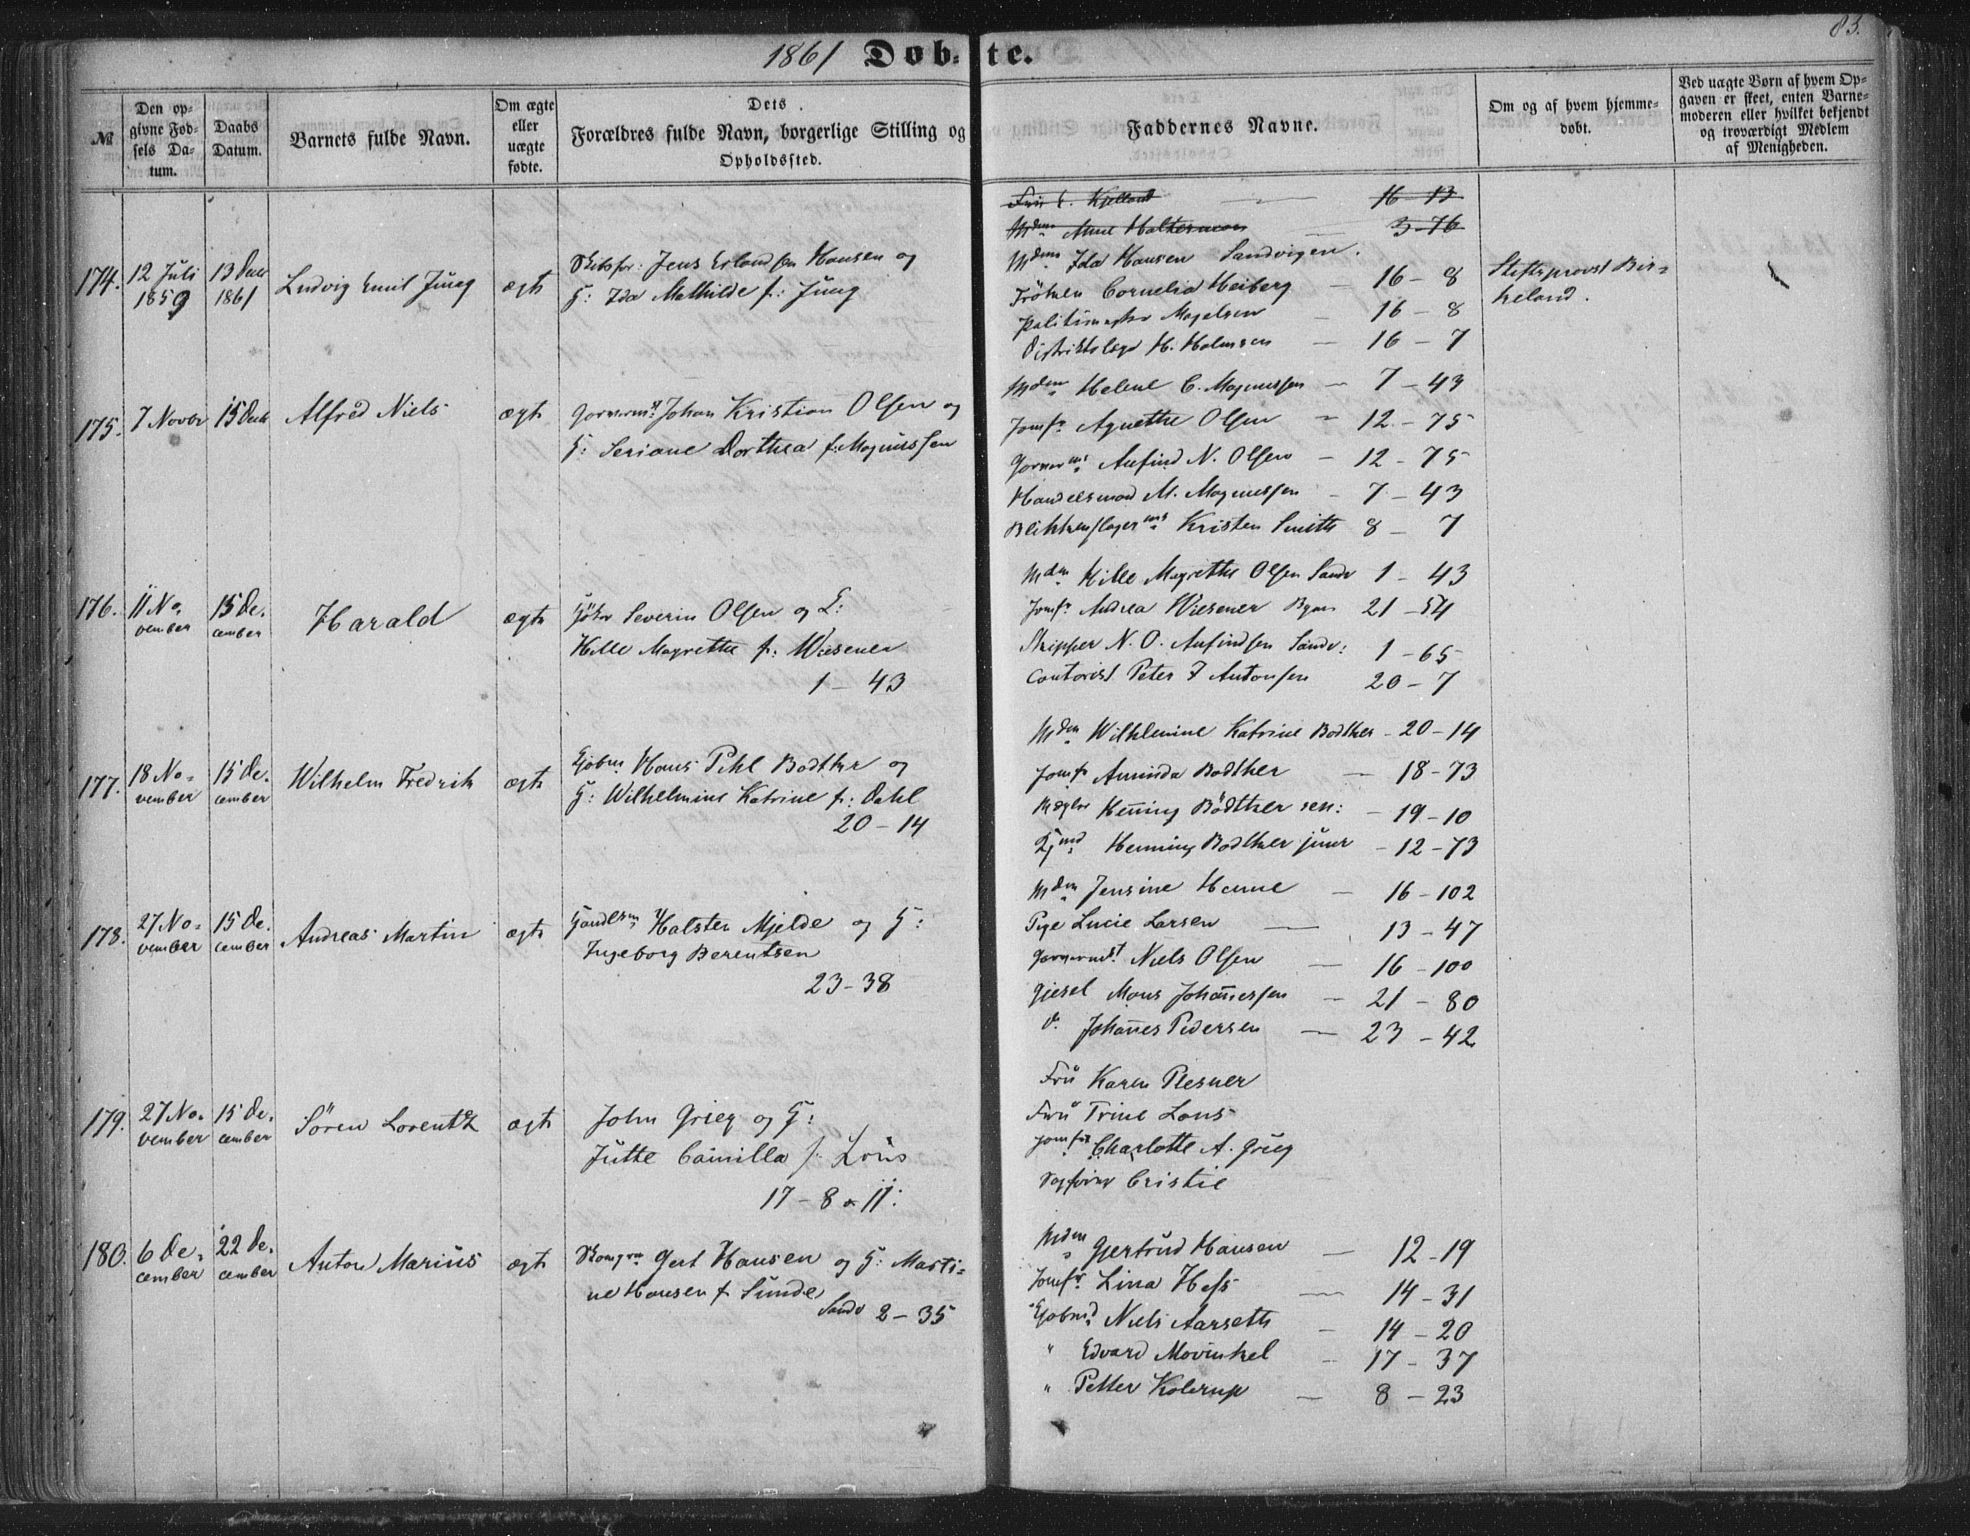 83.
1861 Døb-te.
№
Den opgivne Fødsels Datum.
Daabs Datum.
Barnets fulde Navn.
Om ægte eller uægte fødte.
Dets Forældres fulde Navn, borgerlige Stilling og Opholdssted.
Faddernes Navne.
Om og af hvem hjemmedøbt.
Ved uægte Børn af hvem Opgaven er skeet, enten Barnemoderen eller hvilket bekjendt og troværdigt Medlem af Menigheden.
Frü C. Kjelland 16-13
Mdm Anne Haltermann 3-76
174. 12 Juli 1859 13 Decbr 1861 Ludvig Emil Jüng ægte
Skibsfør: Jens Erlandsen Hansen og
H: Ida Mathilde f: Jüng
Mdm Ida Hansen Sandvigen.
Fröken Cornelia Heiberg 16-8
Politimester Magelsen 16-8
Distriktslæge H. Holmsen 16-7
Stiftsprovst Birkeland.
175. 7 Novbr 15 Decb Alfred Niels ægte
Garverm: Johan Kristian Olsen og
H: Seriane Dorthea f: Magnussen
Mdm Helene C. Magnussen 7-43
Jomfr Agnethe Olsen 12-75
Garverms Anfind N. Olsen 12-75
Handelsmand M. Magnussen 7-43
Blikkenslagerms Kristen Smith 8-7
176. 11 November 15 December Harald ægte
Severin Olsen og H:
Hille Magrethe f: Wiesener
1-43
Mdm Hille Magrethe Olsen Sandv 1-43
Jomfr. Andrea Wiesener 21-54
Skipper N. O. Anfindsen Sandv: 1-65
Contorist Peter F Antonsen 20-7
177. 18 November 15 December Wilhelm Fredrik ægte
Kjøbm Hans Pihl Bødtker og
H: Wilhelmine Katrine f: Dahl
20-14
Mdm Wilhlemine Katrine Bødtker 20-14
Jomfr Aminda Bødtker 18-73
Mægler Henning Bödtker sen: 19-10
Kjmd Henning Bødtker junr 12-73
178. 27 November 15 December Andreas Martin ægte
Handelsm Halsten Mjelde og H:
Ingeborg Berentsen
23-38
Mdm Jensine Hanne 16-102
Pige Lucie Larsen 13-47
Garvermst Niels Olsen 16-100
Gjesel Mons Johannessen 21-80
do. Johannes Pedersen 23-42
179. 27 November 15 December Sören Lorentz ægte
John Grieg og H:
Jütte Camilla f. Löns
17-8 & 11:
Frü Karen Plesner
Frü Trine Lons
Jomfr Charlotte A. Grieg
Sagfører Cristie
180. 6 December 22 December Anton Marius ægte
Gert Hansen og H: Martine
Hansen f. Sunde
Sandv 2-35
Mdm Gjertrud Hansen 12-19
Jomfr. Lina Hess 14-31
Kjøbmd Niels Aarseth 14-20
" Edvard Mowinkel 17-37
" Petter Kolerup 8-23